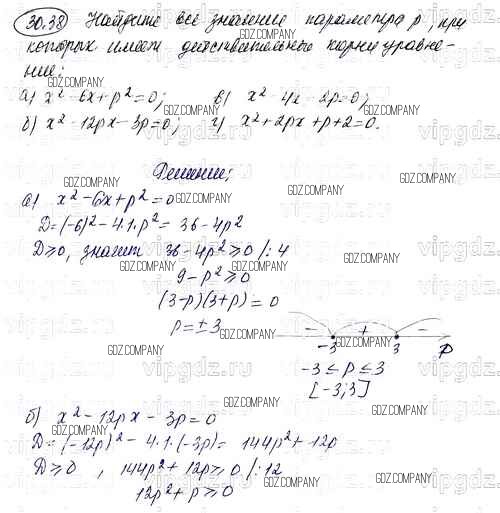 30.38 Найдите все значения параметра p, при
которых имеет действительные корни уравне-
ние:
а) x² - 6x + p² = 0; в) x² - 4x - 2p = 0;
б) x² - 12px - 3p = 0; г) x² + 2px + p + 2 = 0.
Решение:
а) x² - 6x + p² = 0
D = (-6)² - 4·1·p² = 36 - 4p²
D ≥ 0, значит 36 - 4p² ≥ 0 /: 4
9 - p² ≥ 0
(3-p)(3+p) = 0
p = ± 3
- + -
-3 3 p
-3 ≤ p ≤ 3
[-3; 3]
б) x² - 12px - 3p = 0
D = (-12p)² - 4·1·(-3p) = 144p² + 12p
D ≥ 0, 144p² + 12p ≥ 0 /: 12
12p² + p ≥ 0
GDZ.COMPANY
vipgdz.ru